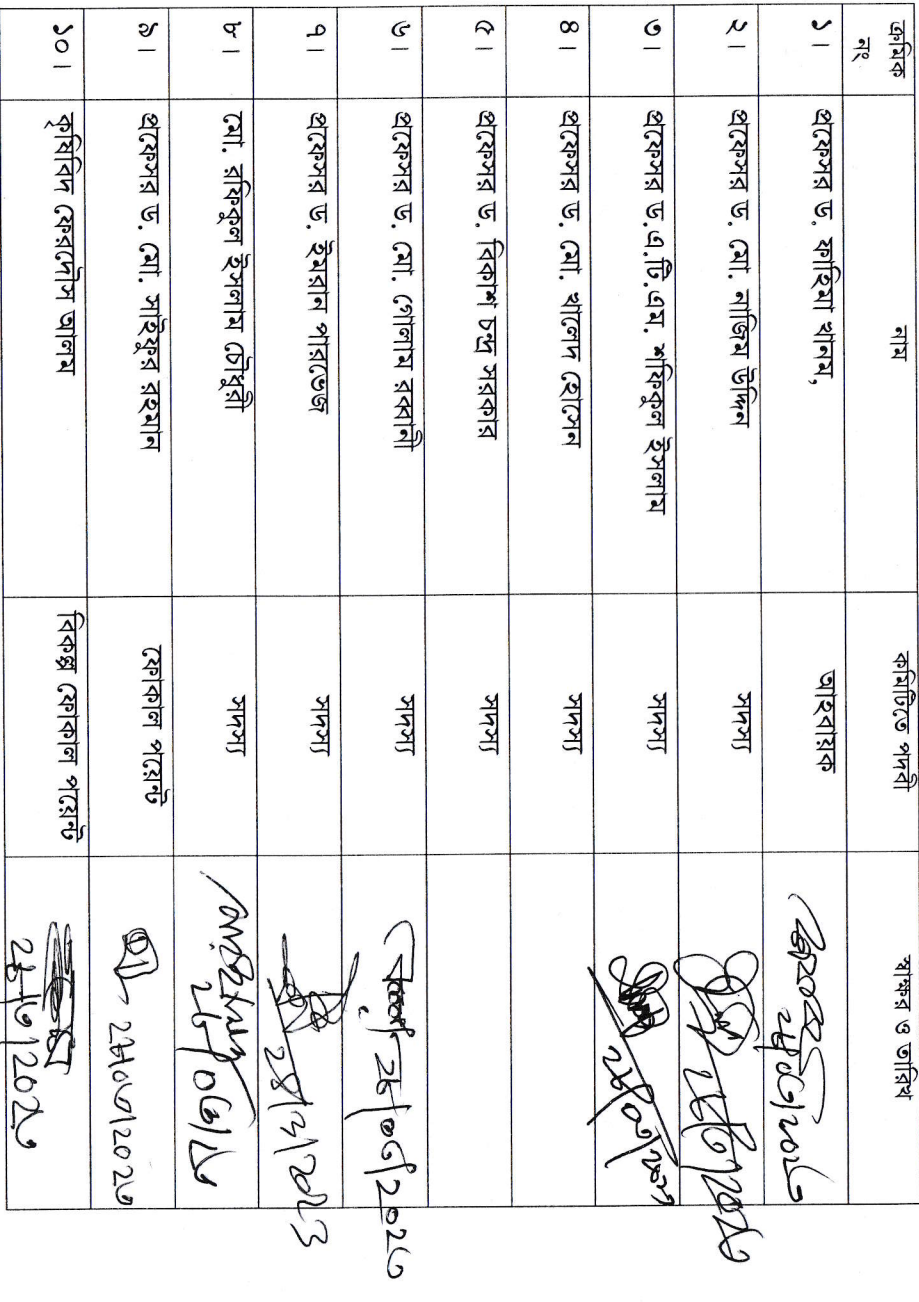 ক্রমিক নং নাম কমিটিতে পদবী স্বাক্ষর ও তারিখ
১। প্রফেসর ড. ফাহিমা খানম, আহবায়ক
২। প্রফেসর ড. মো. নাজিম উদ্দিন সদস্য
৩। প্রফেসর ড.এ.টি.এম. শফিকুল ইসলাম সদস্য
৪। প্রফেসর ড. মো. খালেদ হোসেন সদস্য
৫। প্রফেসর ড. বিকাশ চন্দ্র সরকার সদস্য
৬। প্রফেসর ড. মো. গোলাম রব্বানী সদস্য ২৮/০৩/২০২৩
৭। প্রফেসর ড. ইমরান পারভেজ সদস্য 28/3/2023
৮। মো. রফিকুল ইসলাম চৌধুরী সদস্য ২৮/০৩/২৩
৯। প্রফেসর ড. মো. সাইফুর রহমান ফোকাল পয়েন্ট ২৮/০৩/২০২৩
১০। কৃষিবিদ ফেরদৌস আলম বিকল্প ফোকাল পয়েন্ট ২৮/৩/২০২৩